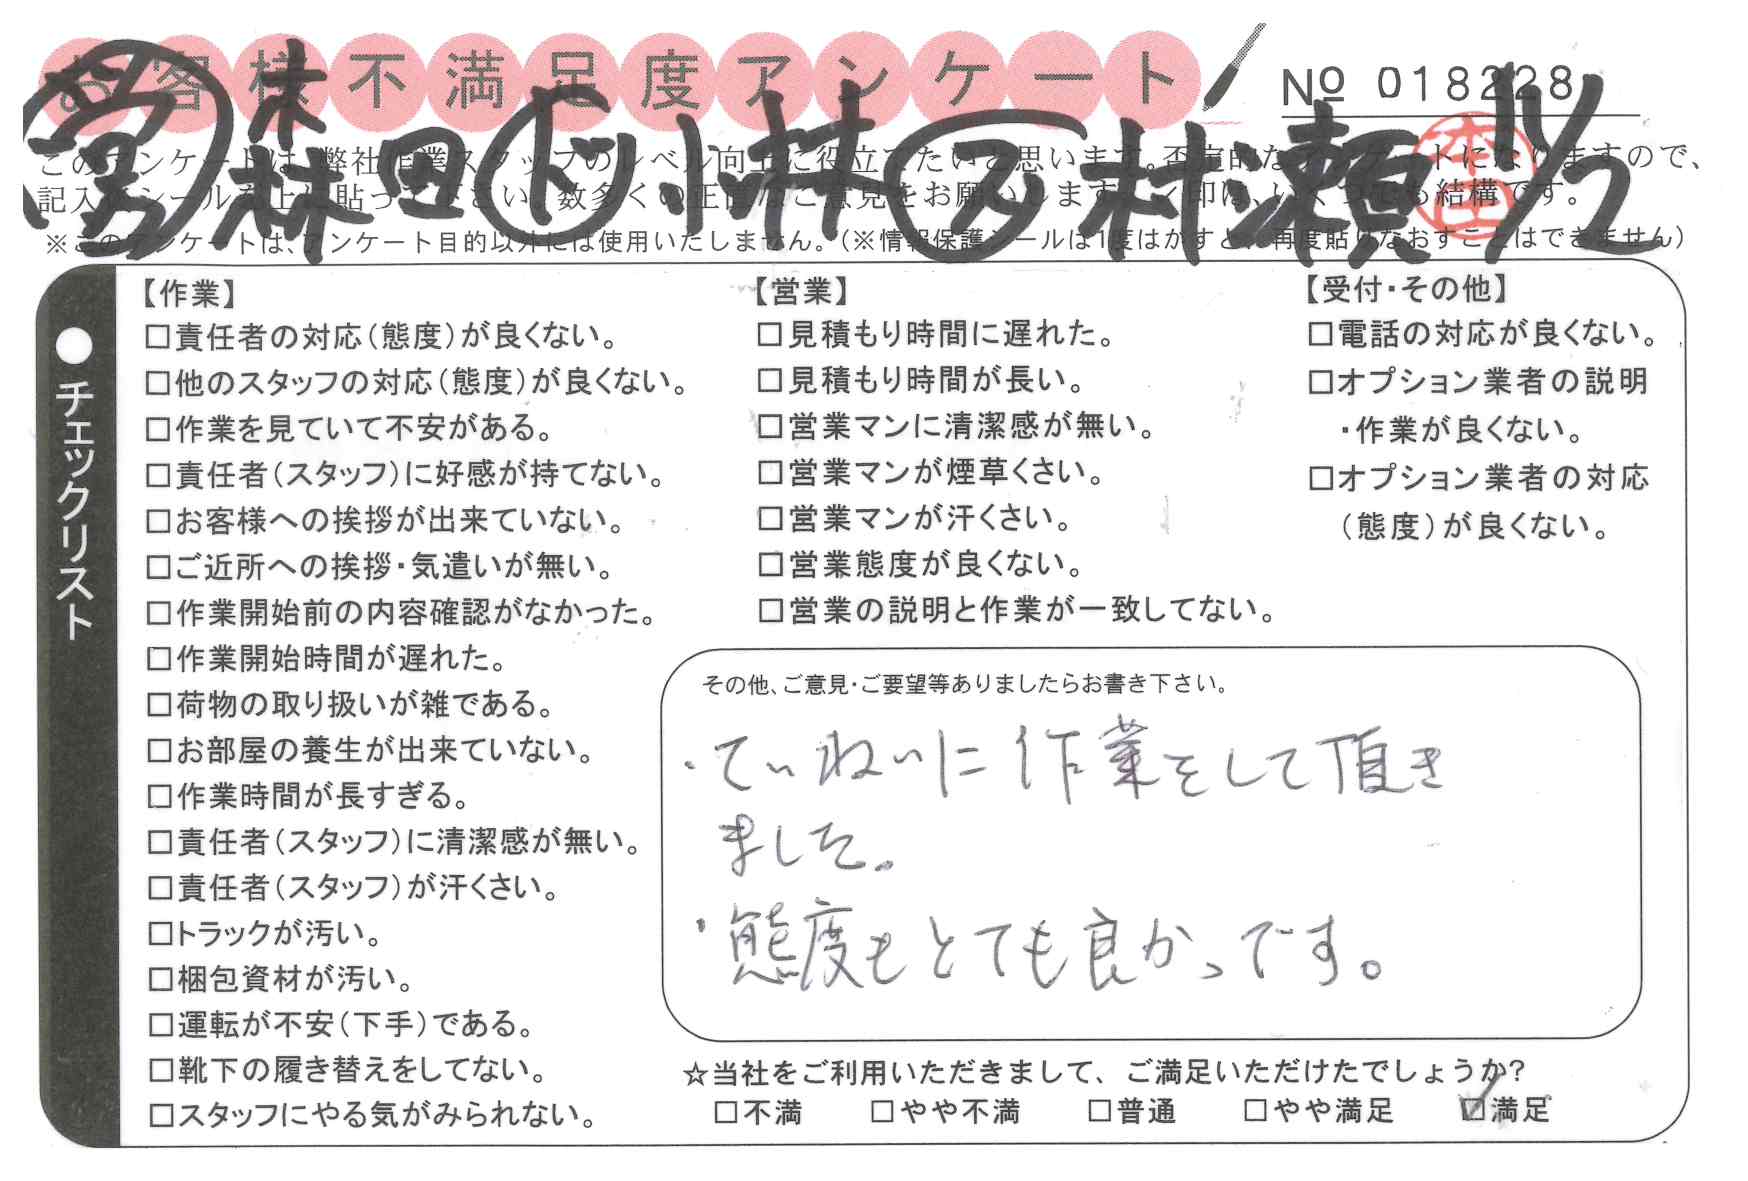 お客様不満足度アンケート
№ 018228
営 森田 ト 小林 ア 村瀬 11/2
本田
このアンケートは、弊社作業スタッフのレベル向上に役立てたいと思います。否定的なアンケートになりますので、
記入後シールを上に貼って下さい。数多くの正直なご意見をお願いします。✓印は、いくつでも結構です。
※このアンケートは、アンケート目的以外には使用いたしません。(※情報保護シールは1度はがすと、再度貼りなおすことはできません)
●チェックリスト
【作業】
□責任者の対応(態度)が良くない。
□他のスタッフの対応(態度)が良くない。
□作業を見ていて不安がある。
□責任者(スタッフ)に好感が持てない。
□お客様への挨拶が出来ていない。
□ご近所への挨拶・気遣いが無い。
□作業開始前の内容確認がなかった。
□作業開始時間が遅れた。
□荷物の取り扱いが雑である。
□お部屋の養生が出来ていない。
□作業時間が長すぎる。
□責任者(スタッフ)に清潔感が無い。
□責任者(スタッフ)が汗くさい。
□トラックが汚い。
□梱包資材が汚い。
□運転が不安(下手)である。
□靴下の履き替えをしてない。
□スタッフにやる気がみられない。
【営業】
□見積もり時間に遅れた。
□見積もり時間が長い。
□営業マンに清潔感が無い。
□営業マンが煙草くさい。
□営業マンが汗くさい。
□営業態度が良くない。
□営業の説明と作業が一致してない。
【受付・その他】
□電話の対応が良くない。
□オプション業者の説明
・作業が良くない。
□オプション業者の対応
(態度)が良くない。
その他、ご意見・ご要望等ありましたらお書き下さい。
・ていねいに作業をして頂き
ました。
・態度もとても良かっです。
☆当社をご利用いただきまして、ご満足いただけたでしょうか?
□不満 □やや不満 □普通 □やや満足 ☑満足